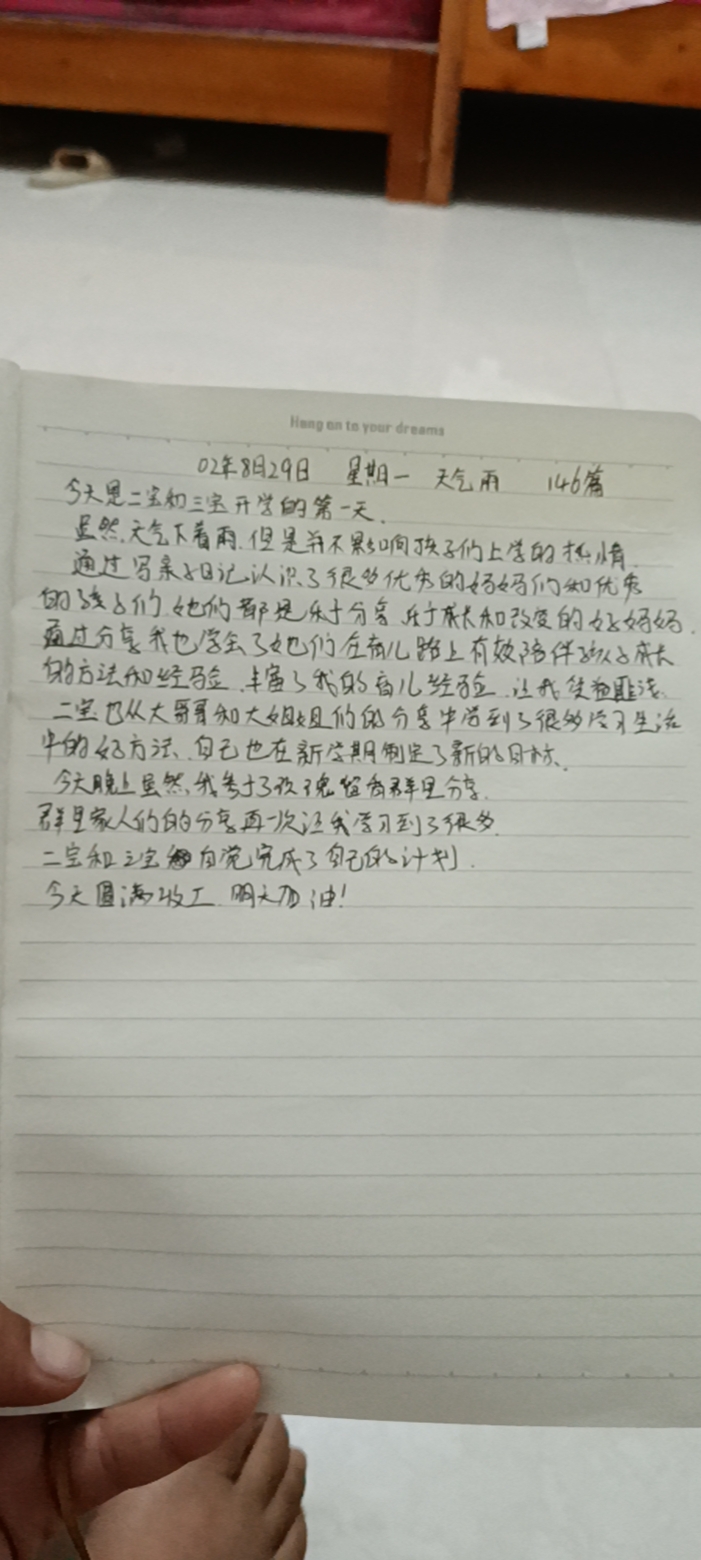 Hang on to your dreams
02年8月29日 星期一 天气雨 146篇
今天是二宝和三宝开学的第一天.
虽然,天气下着雨,但是并不影响孩子们上学的热情.
通过写亲子日记认识了很多优秀的妈妈们和优秀
的孩子们,她们都是乐于分享,乐于成长和改变的好妈妈.
通过分享,我也学会了她们在育儿路上有效陪伴孩子成长
的方法和经验,丰富了我的育儿经验,让我受益匪浅.
二宝也从大哥哥和大姐姐们的分享中学到了很多学习生活
中的好方法,自己也在新学期制定了新的目标.
今天晚上虽然,我 在群里分享.
群里家人们的分享再一次让我学习到了很多.
二宝和三宝自觉完成了自己的计划.
今天圆满收工,明天加油!